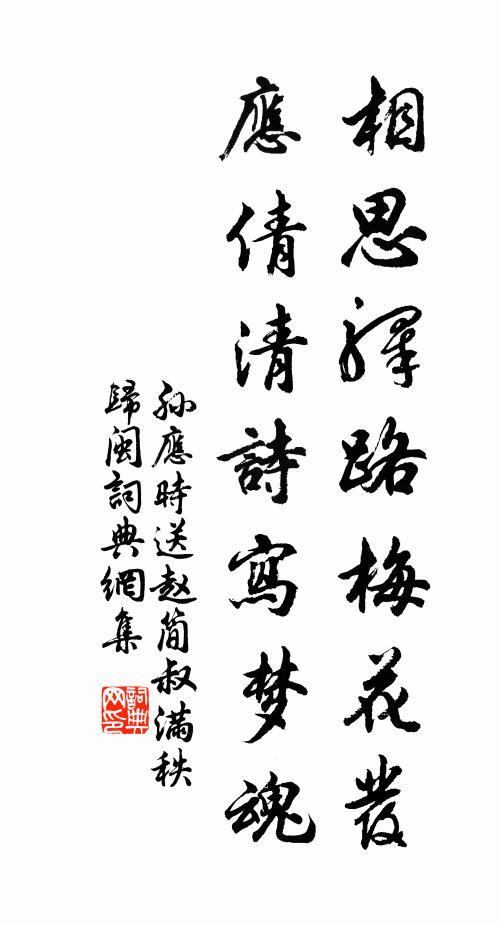 相思驛路梅花發
應倩清詩寫梦魂
孫應時送赵简叔滿秩
歸闽詞典網集
詞典网印